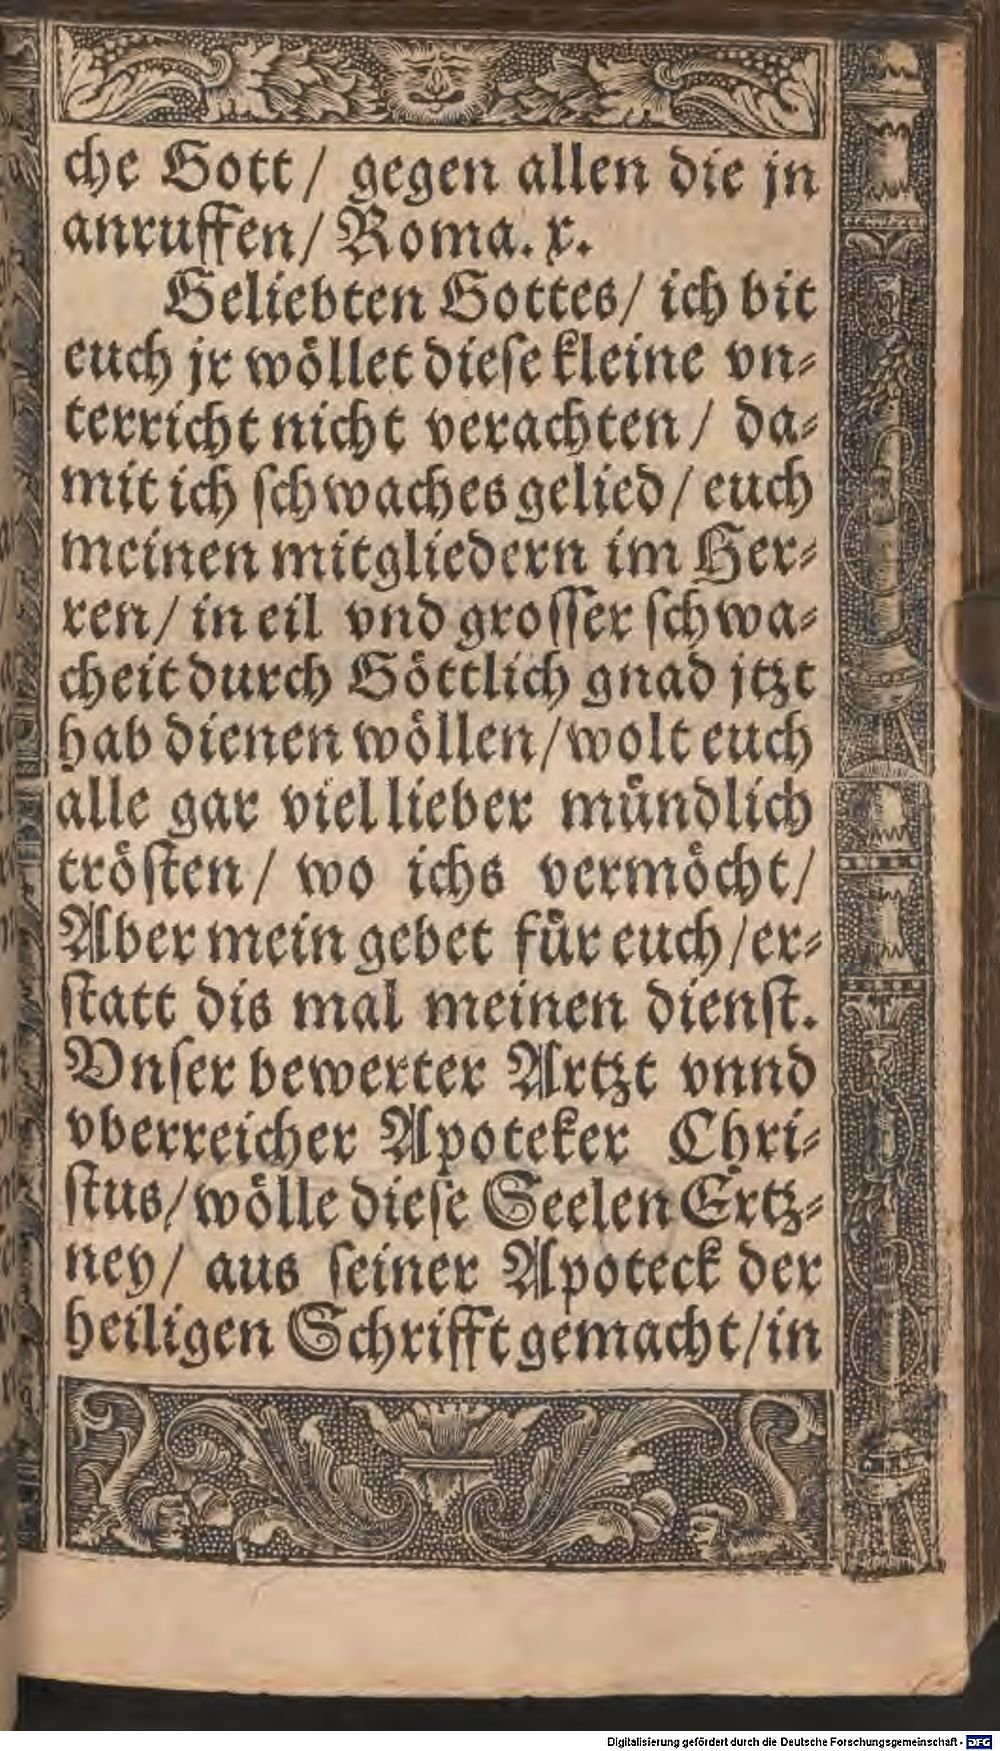 che Gott / gegen allen die jn
anruffen / Roma. x.
Geliebten Gottes / ich bit
euch jr wöllet diese kleine vn⸗
terricht nicht verachten / da⸗
mit ich schwaches gelied / euch
meinen mitgliedern im Her⸗
ren / in eil vnd grosser schwa⸗
cheit durch Göttlich gnad jtzt
hab dienen wöllen / wolt euch
alle gar viel lieber mündlich
trösten / wo ichs vermöcht /
Aber mein gebet für euch / er⸗
statt dis mal meinen dienst.
Vnser bewerter Artzt vnnd
vberreicher Apoteker Chri⸗
stus / wölle diese Seelen Ertz⸗
ney / aus seiner Apoteck der
heiligen Schrifft gemacht / in
Digitalisierung gefördert durch die Deutsche Forschungsgemeinschaft - DFG